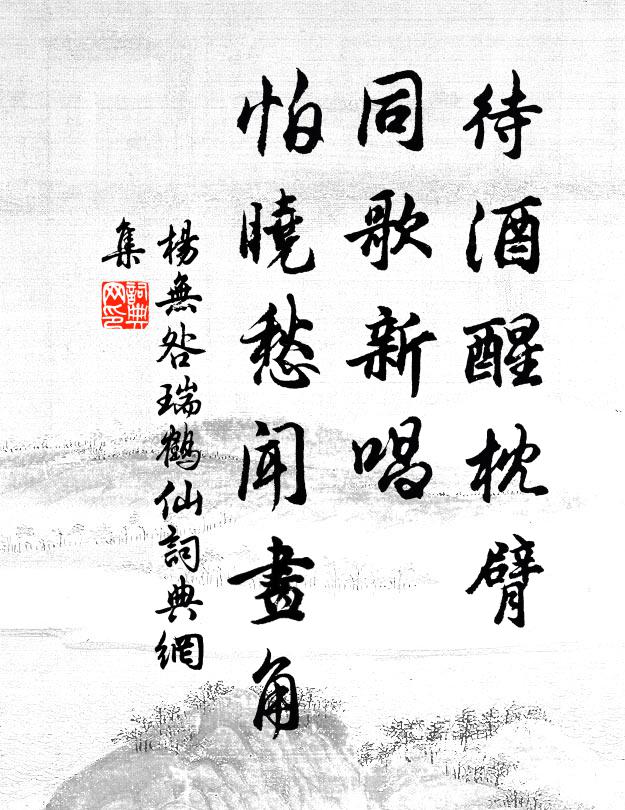 待酒醒枕臂
同歌新唱
怕曉愁聞畫角
楊無咎瑞鶴仙詞典網
集
詞典網印